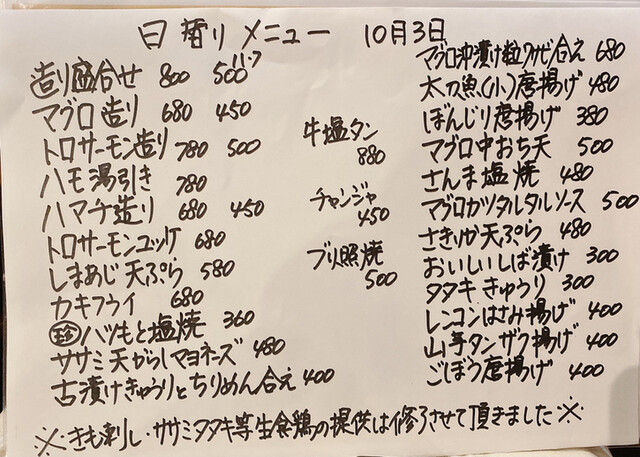 日替りメニュー 10月3日
造り盛合せ 800 500 ハーフ
マグロ造り 680 450
トロサーモン造り 780 500
ハモ湯引き 780
ハマチ造り 680 450
トロサーモンユッケ 680
しまあじ天ぷら 580
カキフライ 680
珍 ハツもと塩焼 360
ササミ天がらしマヨネーズ 480
古漬けきゅうりとちりめん合え 400
牛塩タン
880
チャンジャ
450
ブリ照焼
500
マグロ沖漬け粒ワサビ合え 680
太刀魚(小)唐揚げ 480
ぼんじり唐揚げ 380
マグロ中おち天 500
さんま塩焼 480
マグロカツタルタルソース 500
さきいか天ぷら 480
おいしいしば漬け 300
タタキきゅうり 300
レンコンはさみ揚げ 400
山芋タンザク揚げ 400
ごぼう唐揚げ 400
※きも刺し・ササミタタキ等生食鶏の提供は修了させて頂きました※